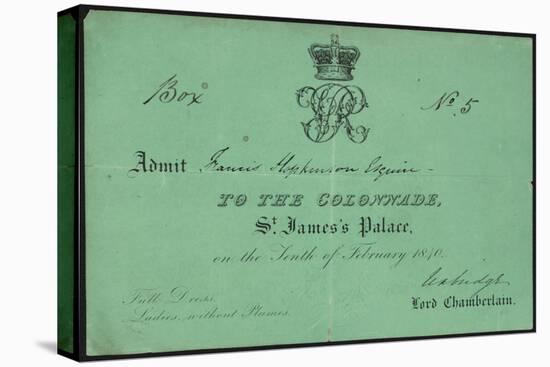 Box
No. 5
Admit Francis Hopkinson Esquire
TO THE COLONNADE,
St. James's Palace,
on the Tenth of February 1840.
Uxbridge
Lord Chamberlain.
Full Dress.
Ladies, without Plumes.